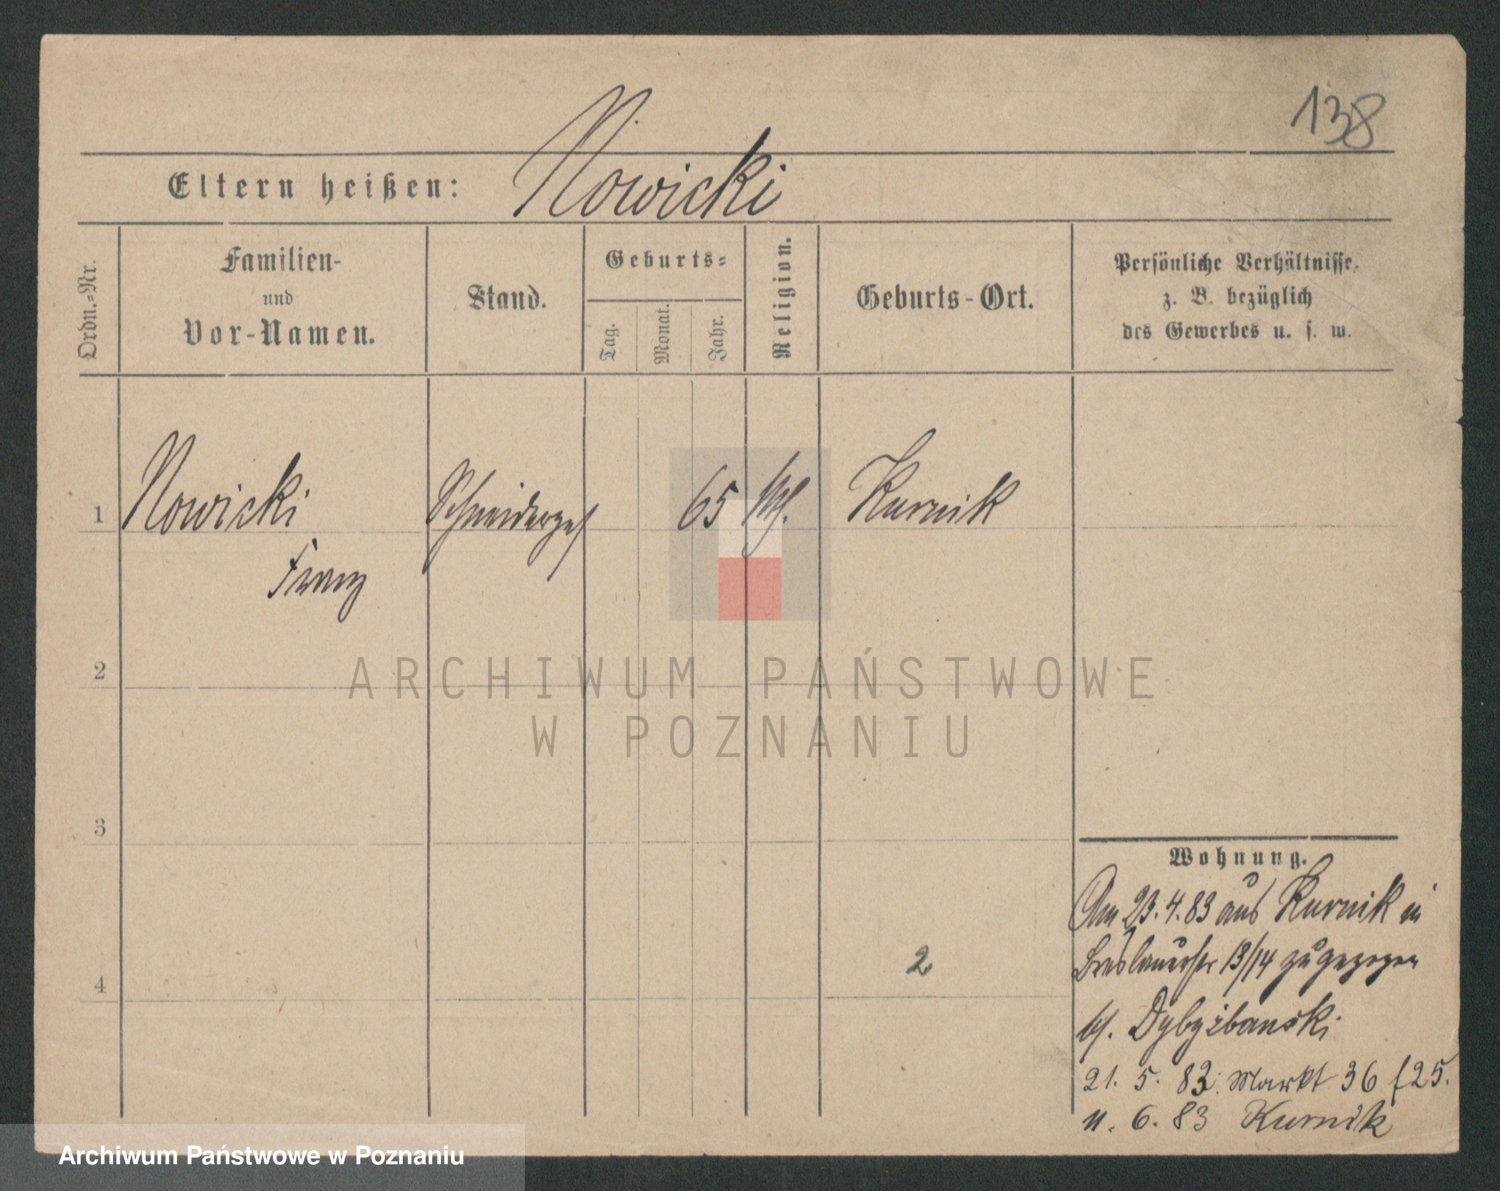 138
Eltern heißen: Nowicki
Ordn.-Nr.
Familien-
und
Vor-Namen.
Stand.
Geburts-
Tag.
Monat.
Jahr.
Religion.
Geburts-Ort.
Persönliche Verhältnisse,
z. B. bezüglich
des Gewerbes u. s. w.
1 Nowicki Schneiderges 65 kth. Kurnik
Franz
2
3
4
2
Wohnung.
Am 23.4.83 aus Kurnik in
Breslauerstr 13/14 zugezogen
21. 5. 83. Markt 36
6. 83 Kurnik
ARCHIWUM PAŃSTWOWE
W POZNANIU
Archiwum Państwowe w Poznaniu